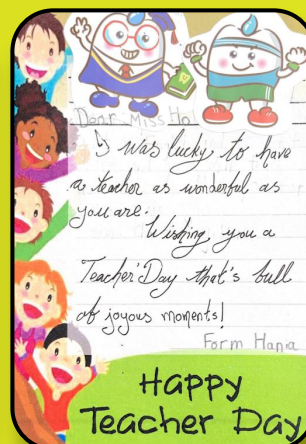 Dear Miss Ha
I was lucky to have
a teacher as wonderful as
you are.
Wishing you a
Teacher'Day that's bull
of joyous moments!
Form Hana
Happy
Teacher Day